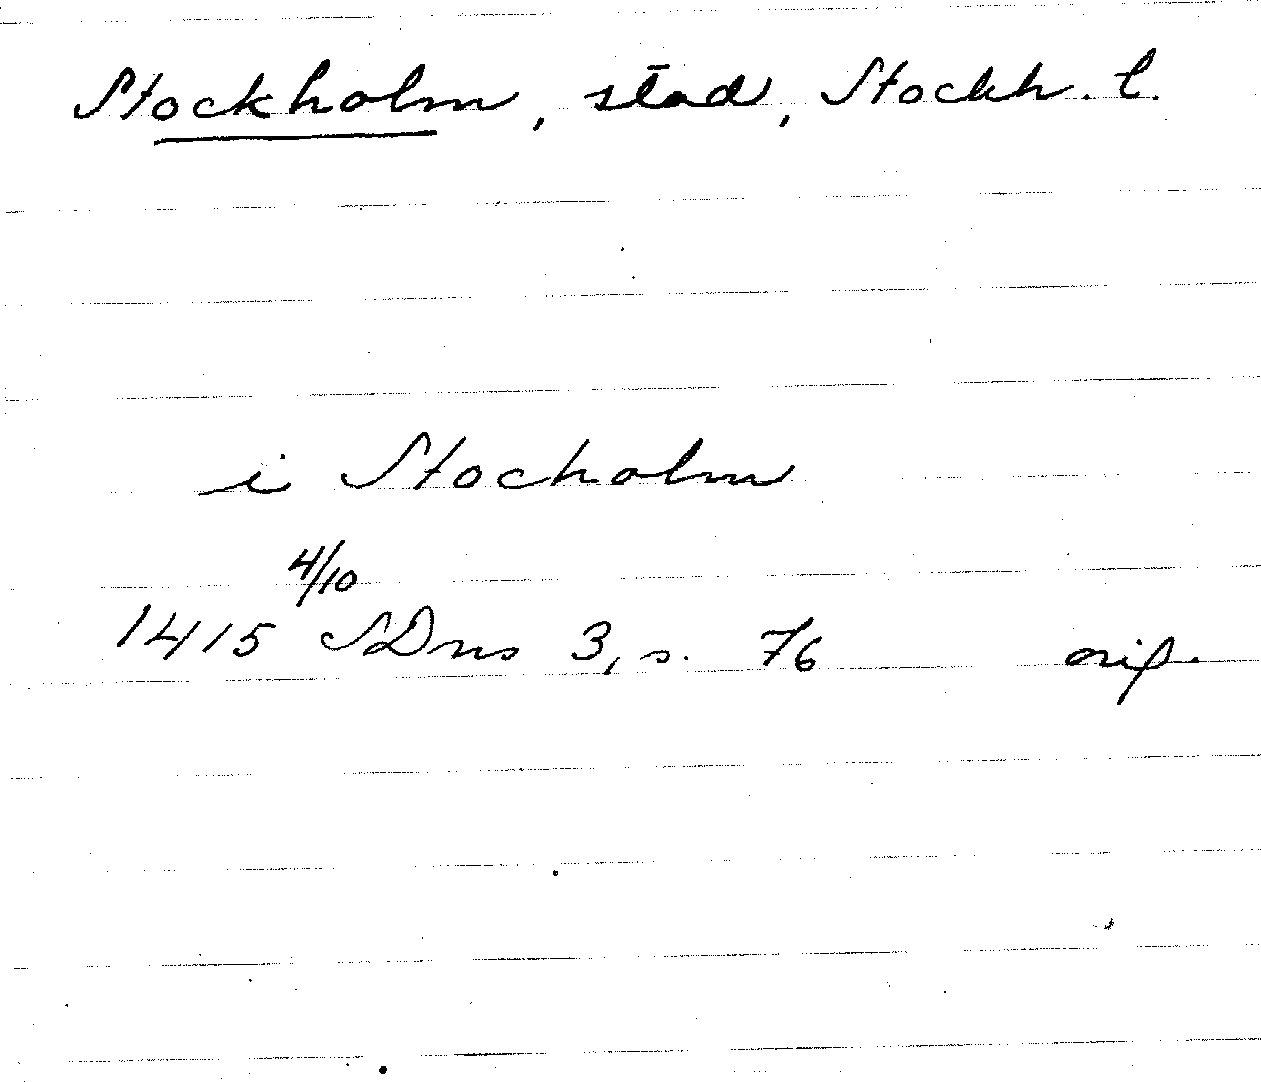 Stockholm, stad, Stockh. l.
i Stocholm
4/10
1415 SDns 3, s. 76 orig.